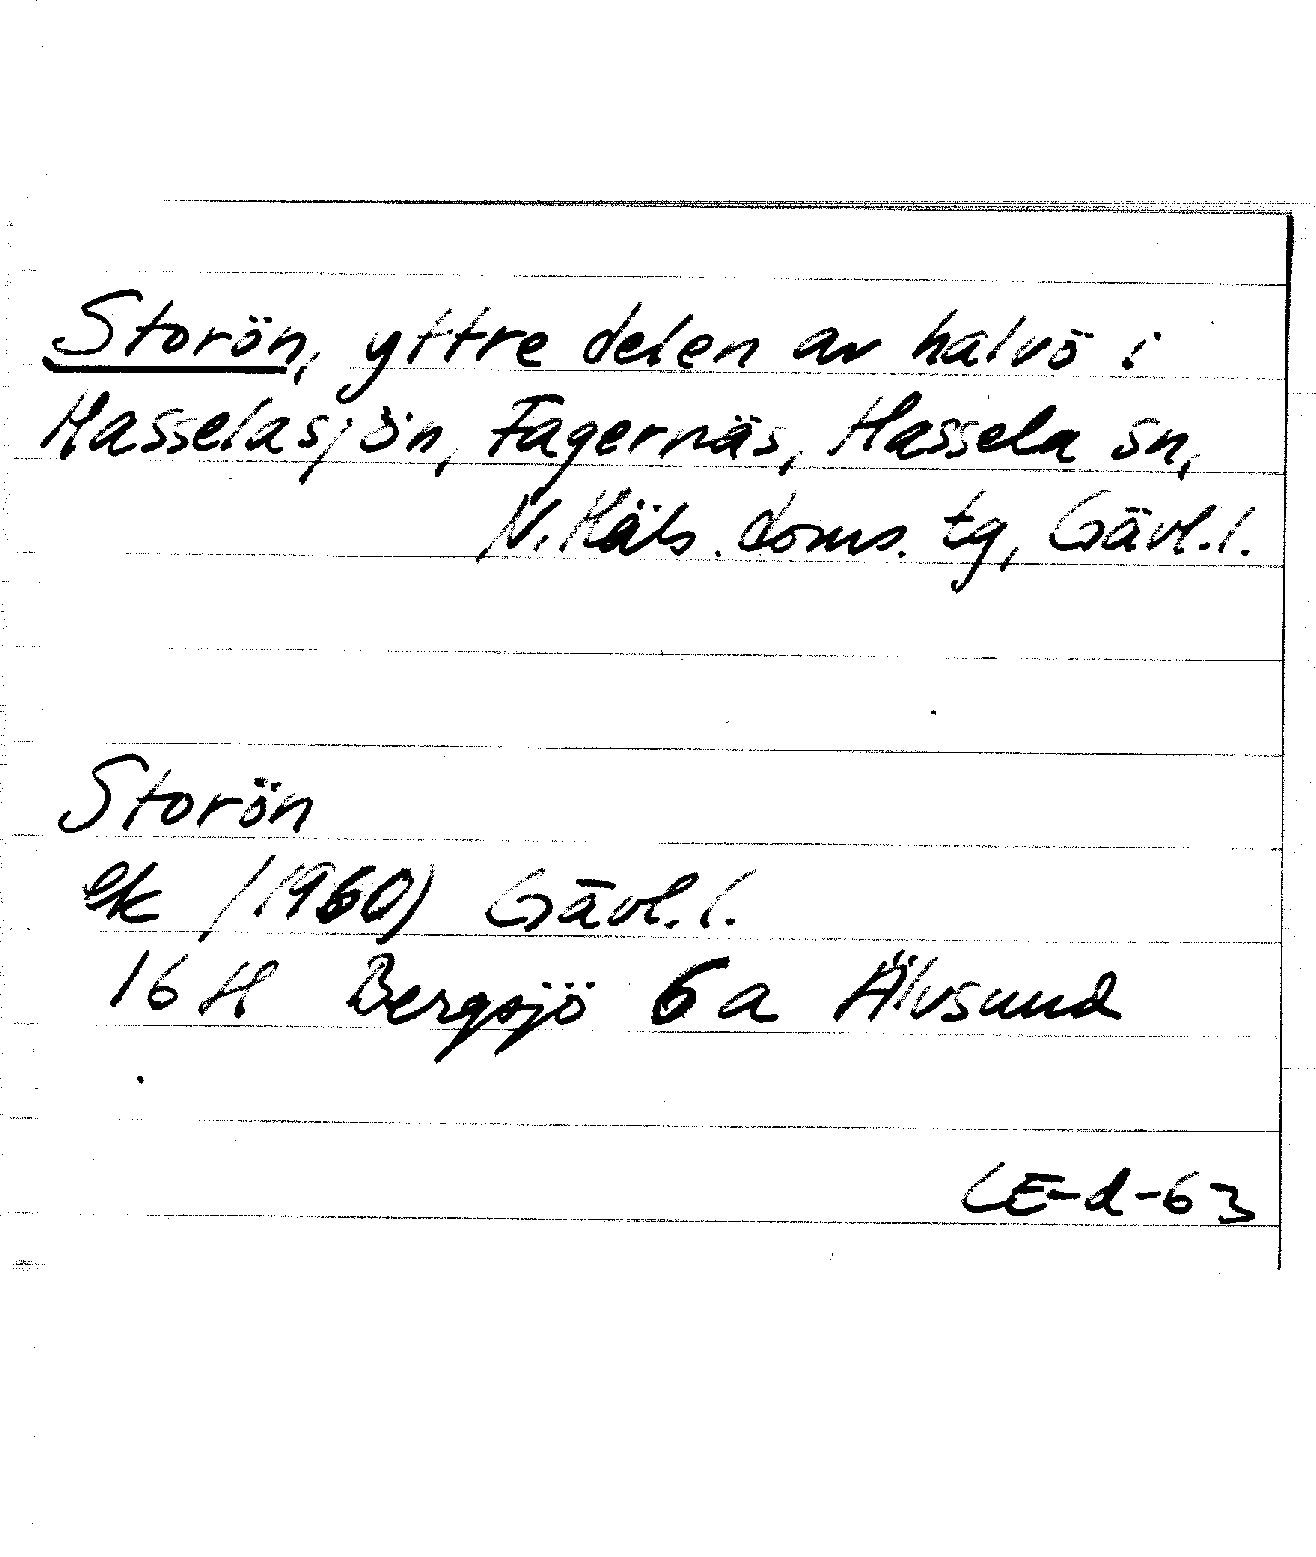 Storön, yttre delen av halvö i
Hasselasjön, Fagernäs, Hassela sn,
N. Häls. doms. tg, Gävl. l.
Storön
ek (1960) Gävl. l.
16 H Bergsjö 6a Älvsund
LE-d-63